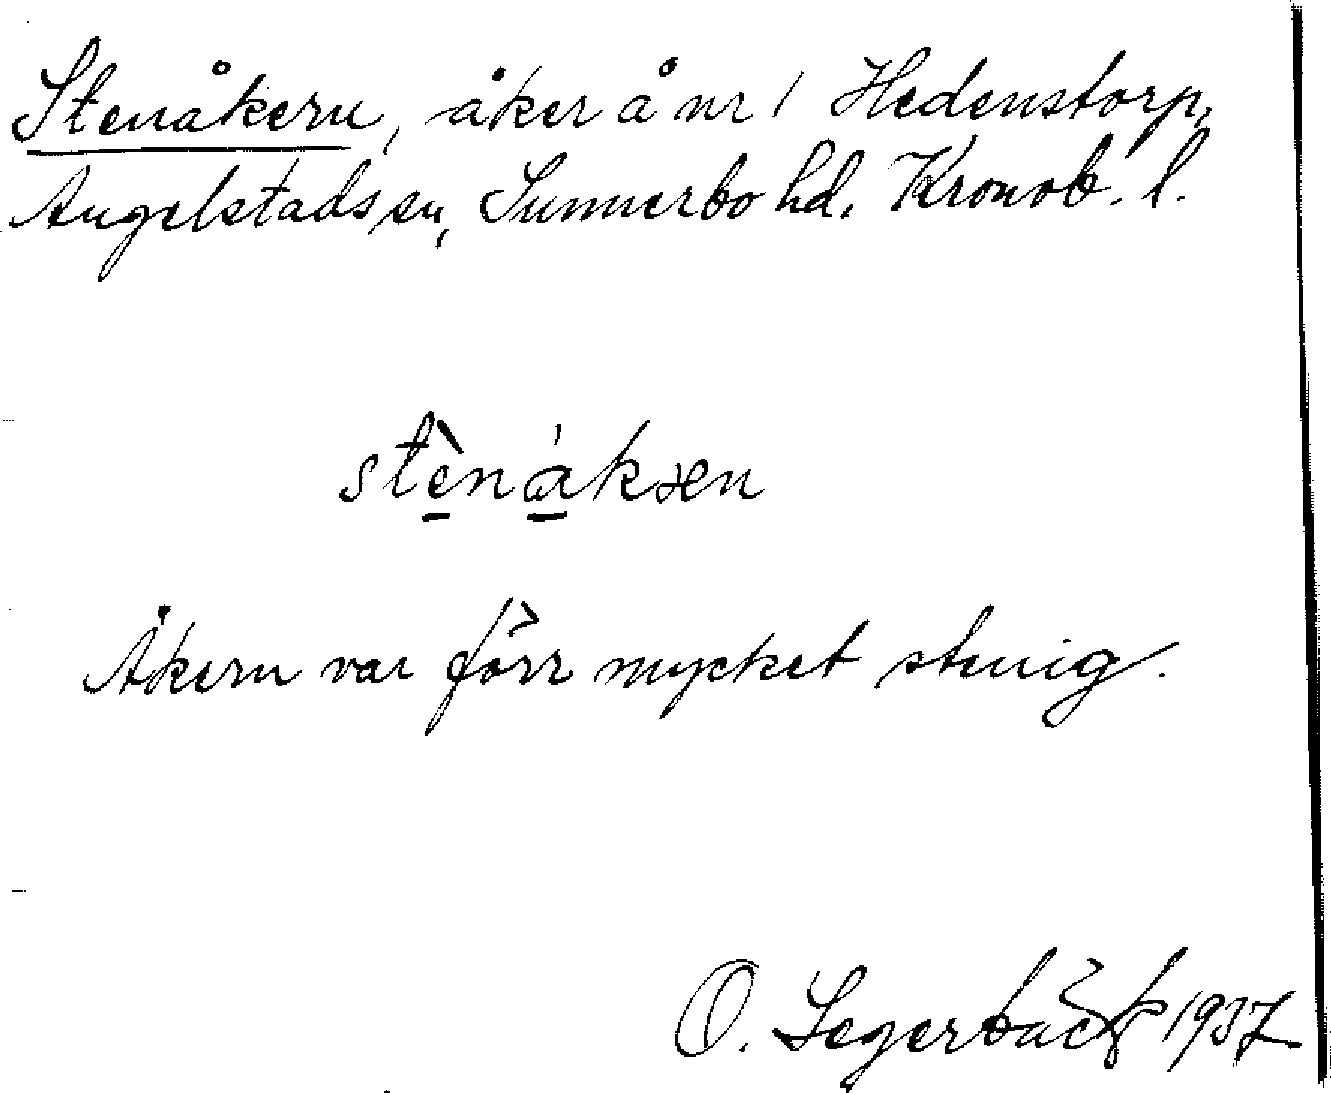 Stenåkern, åker å nr 1 Hedenstorp,
Angelstads sn, Sunnerbo hd. Kronob. l.
stènáksen
Åkern var förr mycket stenig.
O. Segerbäck 1937